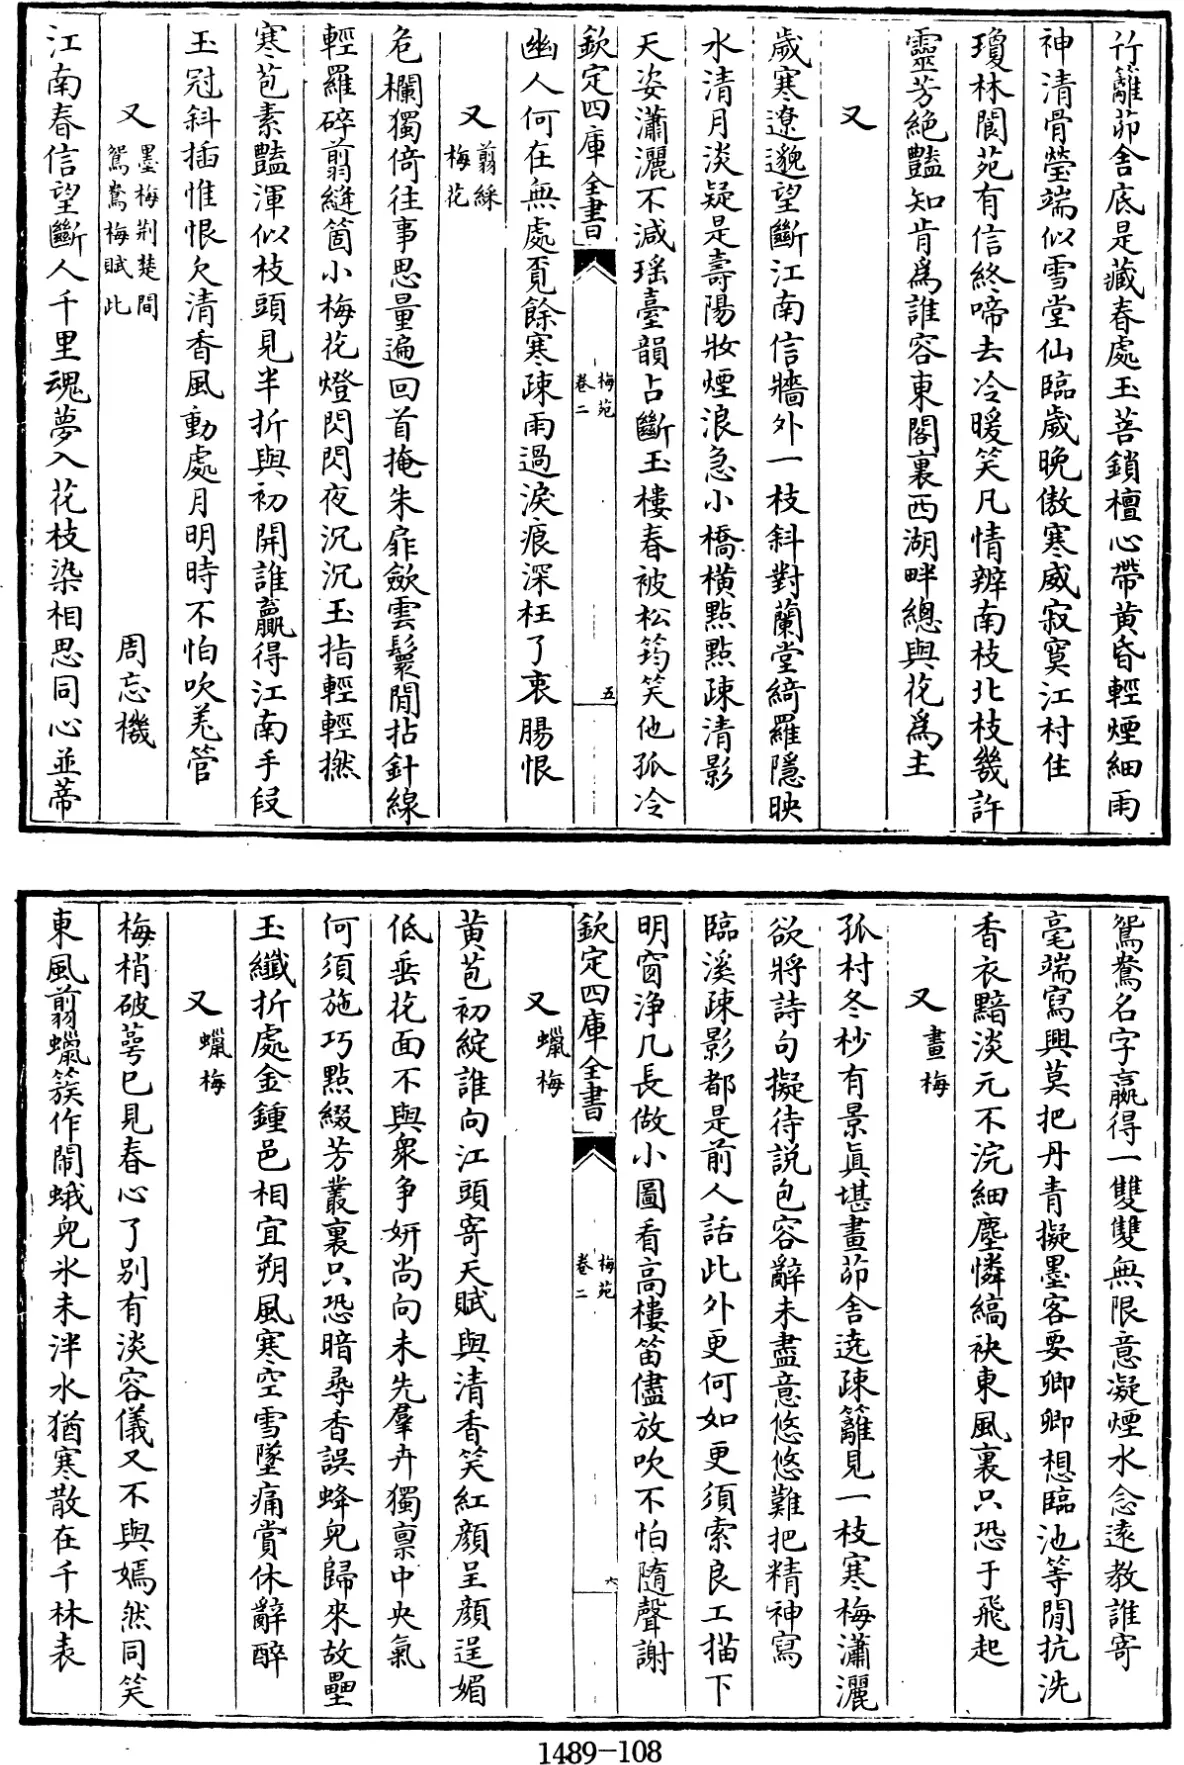 竹籬茆舍底是藏春處玉菩鎖檀心帶黄昏輕煙細雨
神清骨瑩端似雪堂仙臨歲晚傲寒威寂寞江村住
瓊林閬苑有信終啼去冷暖笑凡情辨南枝北枝幾許
靈芳絶豔知肯爲誰容東閣裏西湖畔總與花爲主
又
歲寒遼邈望斷江南信牆外一枝斜對蘭堂綺羅隱映
水清月淡疑是壽陽妝煙浪急小橋横點點疎清影
天姿瀟灑不減瑶臺韻占斷玉樓春被松筠笑他孤冷
欽定四庫全書
梅苑
卷二
五
幽人何在無處覔餘寒疎雨過淚痕深枉了衷腸恨
又 翦綵梅花
危欄獨倚往事思量遍回首掩朱扉歛雲鬟閒拈針線
輕羅碎翦縫箇小梅花燈閃閃夜沉沉玉指輕輕撚
寒苞素豔渾似枝頭見半折與初開誰贏得江南手段
玉冠斜插惟恨欠清香風動處月明時不怕吹羌管
又 墨梅荆楚間鴛鴦梅賦此 周忘機
江南春信望斷人千里魂夢入花枝染相思同心並蒂
鴛鴦名字贏得一雙雙無限意凝煙水念遠教誰寄
毫端寫興莫把丹青擬墨客要卿卿想臨池等閒抗洗
香衣黯淡元不浣細塵憐縞袂東風裏只恐于飛起
又 畫梅
孤村冬杪有景真堪畫茆舍遶疎籬見一枝寒梅瀟灑
欲將詩句擬待説包容辭未盡意悠悠難把精神寫
臨溪疎影都是前人話此外更何如更須索良工描下
明窗浄几長做小圖看高樓笛儘放吹不怕隨聲謝
欽定四庫全書
梅苑
卷二
六
又 蠟梅
黄苞初綻誰向江頭寄天賦與清香笑紅顔呈顔逞媚
低垂花面不與衆争妍尚向未先羣卉獨禀中央氣
何須施巧點綴芳叢裏只恐暗尋香誤蜂兒歸來故壘
玉纖折處金鍾邑相宜朔風寒空雪墜痛賞休辭醉
又 蠟梅
梅梢破萼已見春心了别有淡容儀又不與嫣然同笑
東風翦蠟簇作鬧蛾兒氷未泮水猶寒散在千林表
1489-108